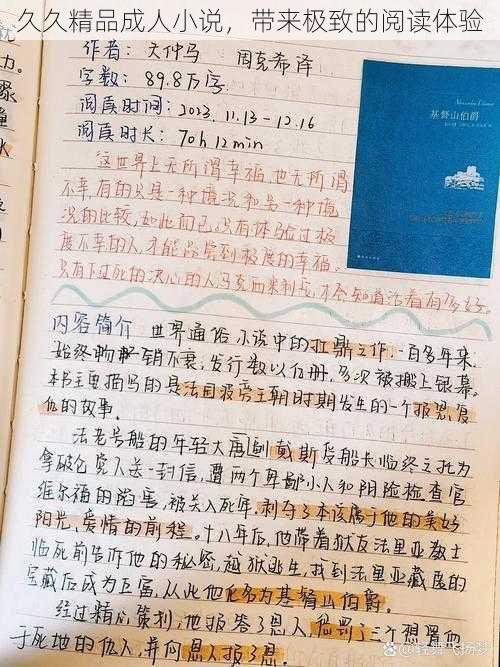 久久精品成人小说，带来极致的阅读体验
作者：大仲马 周克希译
字数：89.8万字
阅读时间：2023.11.13-12.16
阅读时长：70h12min
基督山伯爵
这世界上无所谓幸福，也无所谓
不幸，有的只是一种境况和另一种境
况的比较，如此而已，没有体验过极
度不幸的人，才能品尝到极度的幸福。
只有下过死的决心的人，马克西米利安，才会知道活着有多好。
内容简介 世界通俗小说中的扛鼎之作，一百多年来，
始终畅销不衰，发行数以亿册，多次被搬上银幕。
本书主要描写的是法国波旁王朝时期发生的一个报恩复
仇的故事。
法老号船的年轻大副戴斯受船长临终之托为
拿破仑党人送一封信，遭两个卑鄙小人和阴险检查官
维尔福的陷害，被关入死牢，剥夺了本该属于他的美好
阳光，爱情的前程。十八年后，他带着狱友法里亚教士
临死前告诉他的秘密，越狱逃生，找到法里亚藏匿的
宝藏后成为巨富，从此他化名为基督山伯爵。
经过精心策划，他报答了恩人，惩罚了三个想置他
于死地的仇人，并向恩人报了恩。